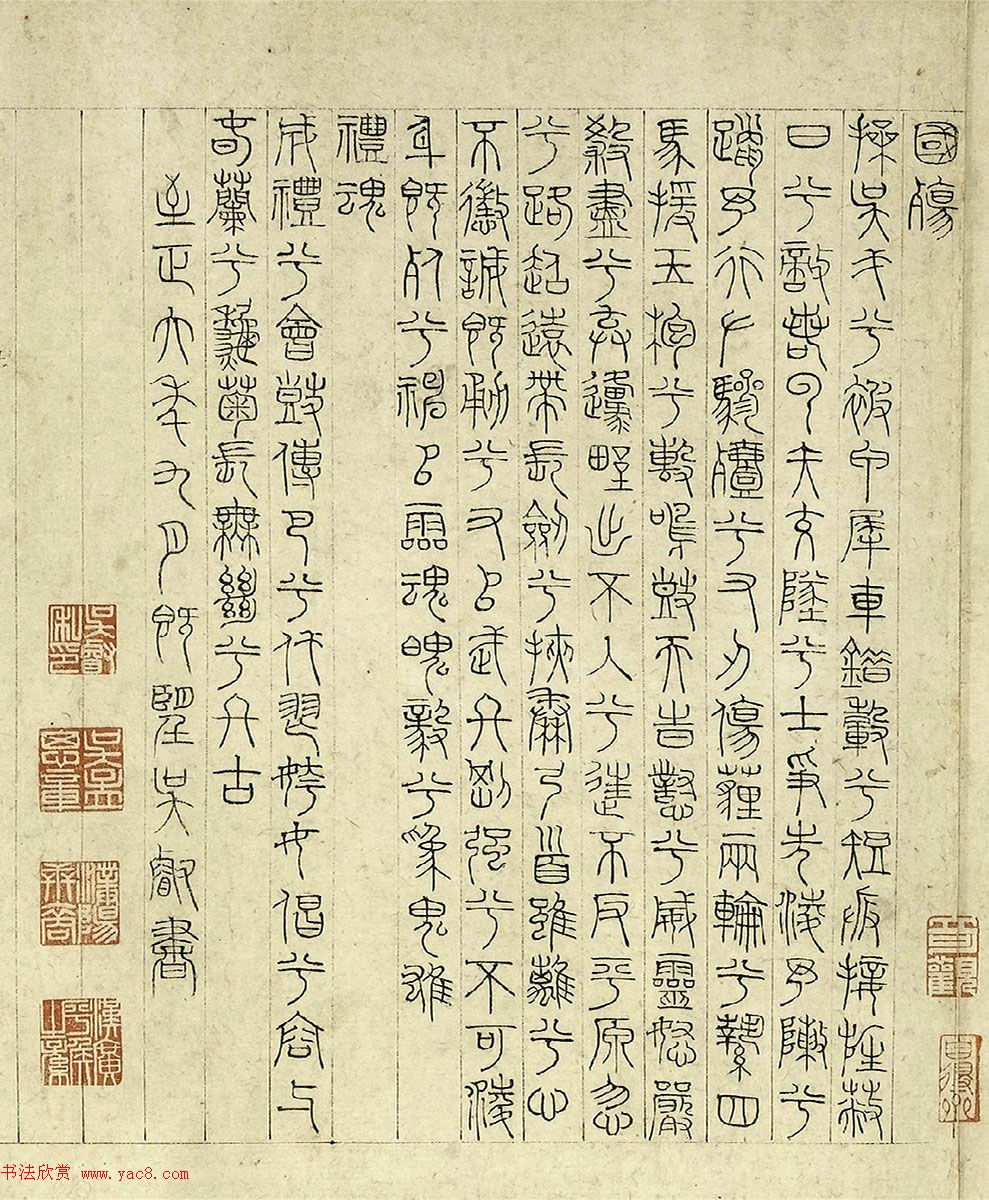 國殤
操吳戈兮被甲犀車錯轂兮短兵接旌蔽
日兮敵若雲矢交墜兮士爭先淩予陳兮
躐予行左驂殪兮右刃傷薶兩輪兮縶四
馬援玉枹兮擊鳴鼓天時懟兮威靈怒嚴
殺盡兮棄邍野出不入兮往不反平原忽
兮路超遠帶長劍兮挾秦弓首雖離兮心
不懲誠既勇兮又以武終剛强兮不可淩
身既死兮神以靈魂魄毅兮爲鬼雄
禮魂
成禮兮會鼓傳芭兮代舞姱女倡兮容与
春蘭兮秋菊長無絕兮終古
至正六年九月既望吳叡書
吳叡私印
吳孟思章
书法欣赏 www.yac8.com